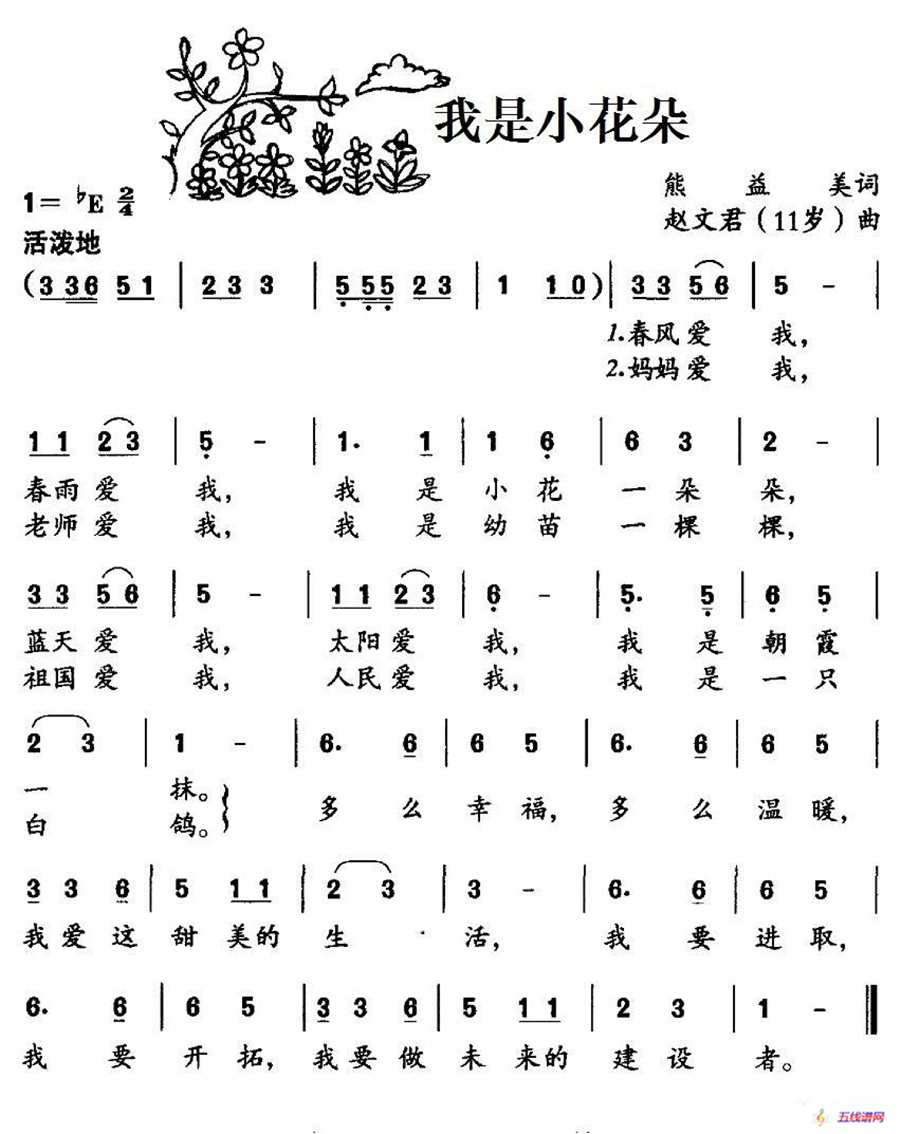 我是小花朵
1=♭E 2/4
熊 益 美词
赵文君（11岁）曲
活泼地
(3 36 51 | 23 3 | 5 55 23 | 1 10) | 33 56 | 5 - |
1.春风爱 我，
2.妈妈爱 我，
11 23 | 5 - | 1. 1 | 1 6 | 6 3 | 2 - |
春雨爱 我， 我 是 小 花 一 朵 朵，
老师爱 我， 我 是 幼 苗 一 棵 棵，
33 56 | 5 - | 11 23 | 6 - | 5. 5 | 6 5 |
蓝天爱 我， 太阳爱 我， 我 是 朝 霞
祖国爱 我， 人民爱 我， 我 是 一 只
2 3 | 1 - | 6. 6 | 6 5 | 6. 6 | 6 5 |
一 抹。 多 么 幸 福， 多 么 温 暖，
白 鸽。
3 3 6 | 5 11 | 2 3 | 3 - | 6. 6 | 6 5 |
我 爱 这 甜 美的 生 活， 我 要 进 取，
6. 6 | 6 5 | 3 3 6 | 5 11 | 2 3 | 1 - ‖
我 要 开 拓， 我 要 做 未 来的 建 设 者。
五线谱网